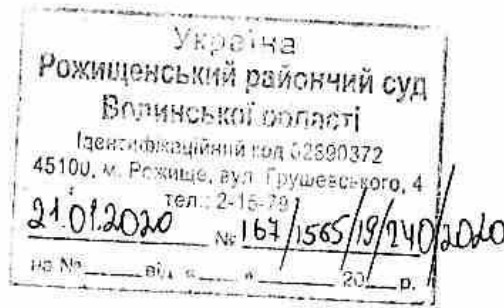 Україна
Рожищенський районний суд
Волинської області
Ідентифікаційний код 02890372
45100, м. Рожище, вул. Грушевського, 4
тел.: 2-15-79
21.01.2020 № 167/1565/19/240/2020
на № від « » 20 р.